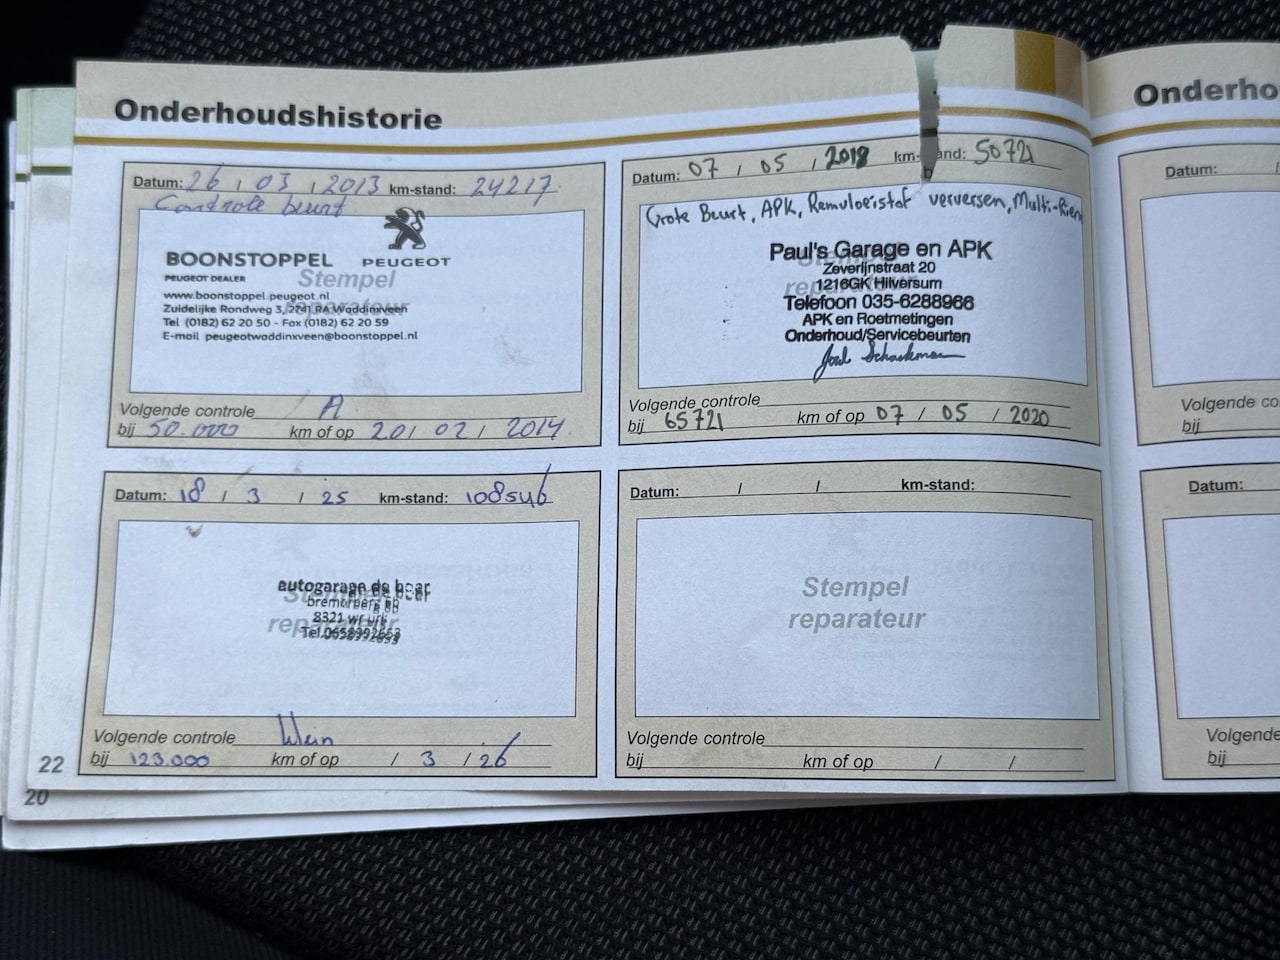 Onderhoudshistorie
Datum: 26 / 03 / 2013 km-stand: 24217
Controle beurt
BOONSTOPPEL PEUGEOT
PEUGEOT DEALER
Stempel
reparateur
www.boonstoppel.peugeot.nl
Zuidelijke Rondweg 3, 2741 RA Waddinxveen
Tel (0182) 62 20 50 - Fax (0182) 62 20 59
E-mail peugeotwaddinxveen@boonstoppel.nl
Volgende controle A
bij 50.000 km of op 20 / 02 / 2014
Datum: 07 / 05 / 2018 km- and: 50721
Grote Beurt, APK, Remvloeistof verversen, Multi-Riem
Paul's Garage en APK
Stempel
Zeverijnstraat 20
reparateur
1216GK Hilversum
Telefoon 035-6288966
APK en Roetmetingen
Onderhoud/Servicebeurten
Volgende controle
bij 65721 km of op 07 / 05 / 2020
Datum: 18 / 3 / 25 km-stand: 108546
autogarage de boer
Stempel
8321 wr urk
reparateur
Tel.0658992653
Volgende controle Klein
bij 123.000 km of op / 3 / 26
Datum: / / km-stand:
Stempel
reparateur
Volgende controle
bij km of op / /
22
20
Onderho
Datum:
Volgende co
bij
Datum:
Volgende
bij